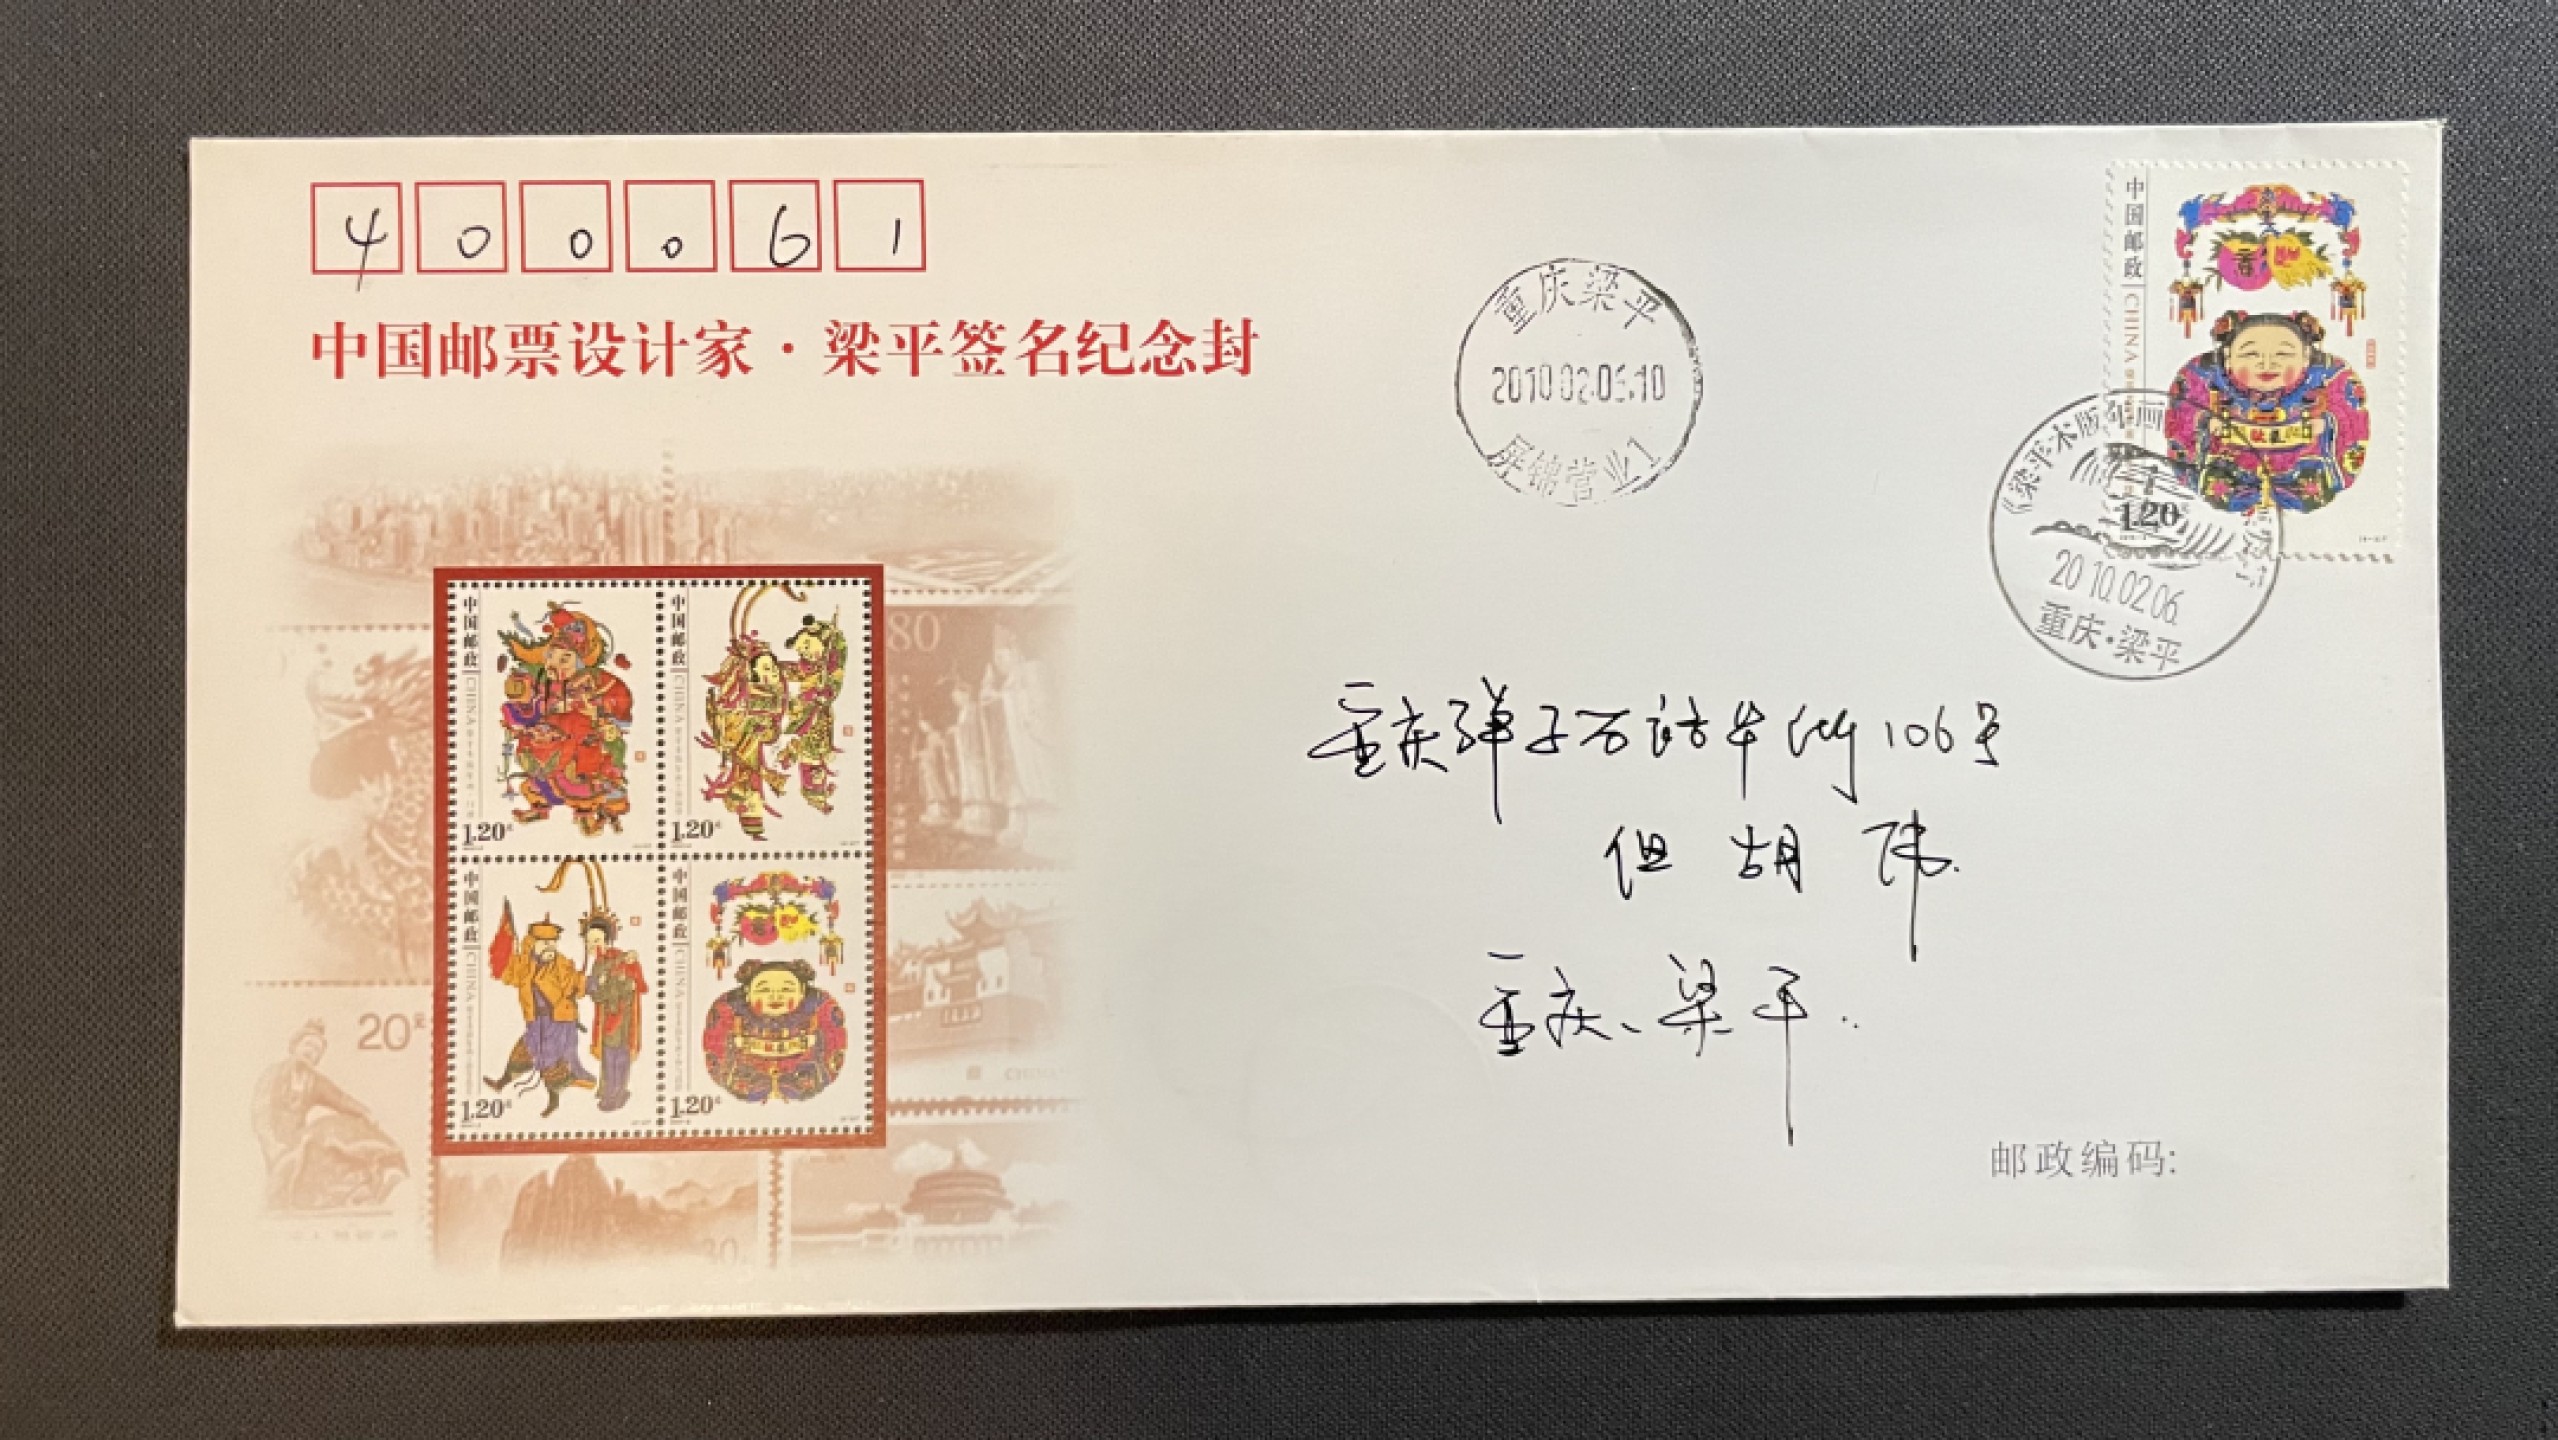 400061
中国邮票设计家·梁平签名纪念封
重庆梁平
2010.02.06.10
屏锦营业1
中国邮政 CHINA
1.20
《梁平木版年画
发行
2010.02.06.
重庆·梁平
中国邮政 CHINA
1.20元
中国邮政 CHINA
1.20元
中国邮政 CHINA
1.20元
中国邮政 CHINA
1.20元
80
20元
30
重庆弹子石 106号
但胡玮
重庆、梁平.
邮政编码: